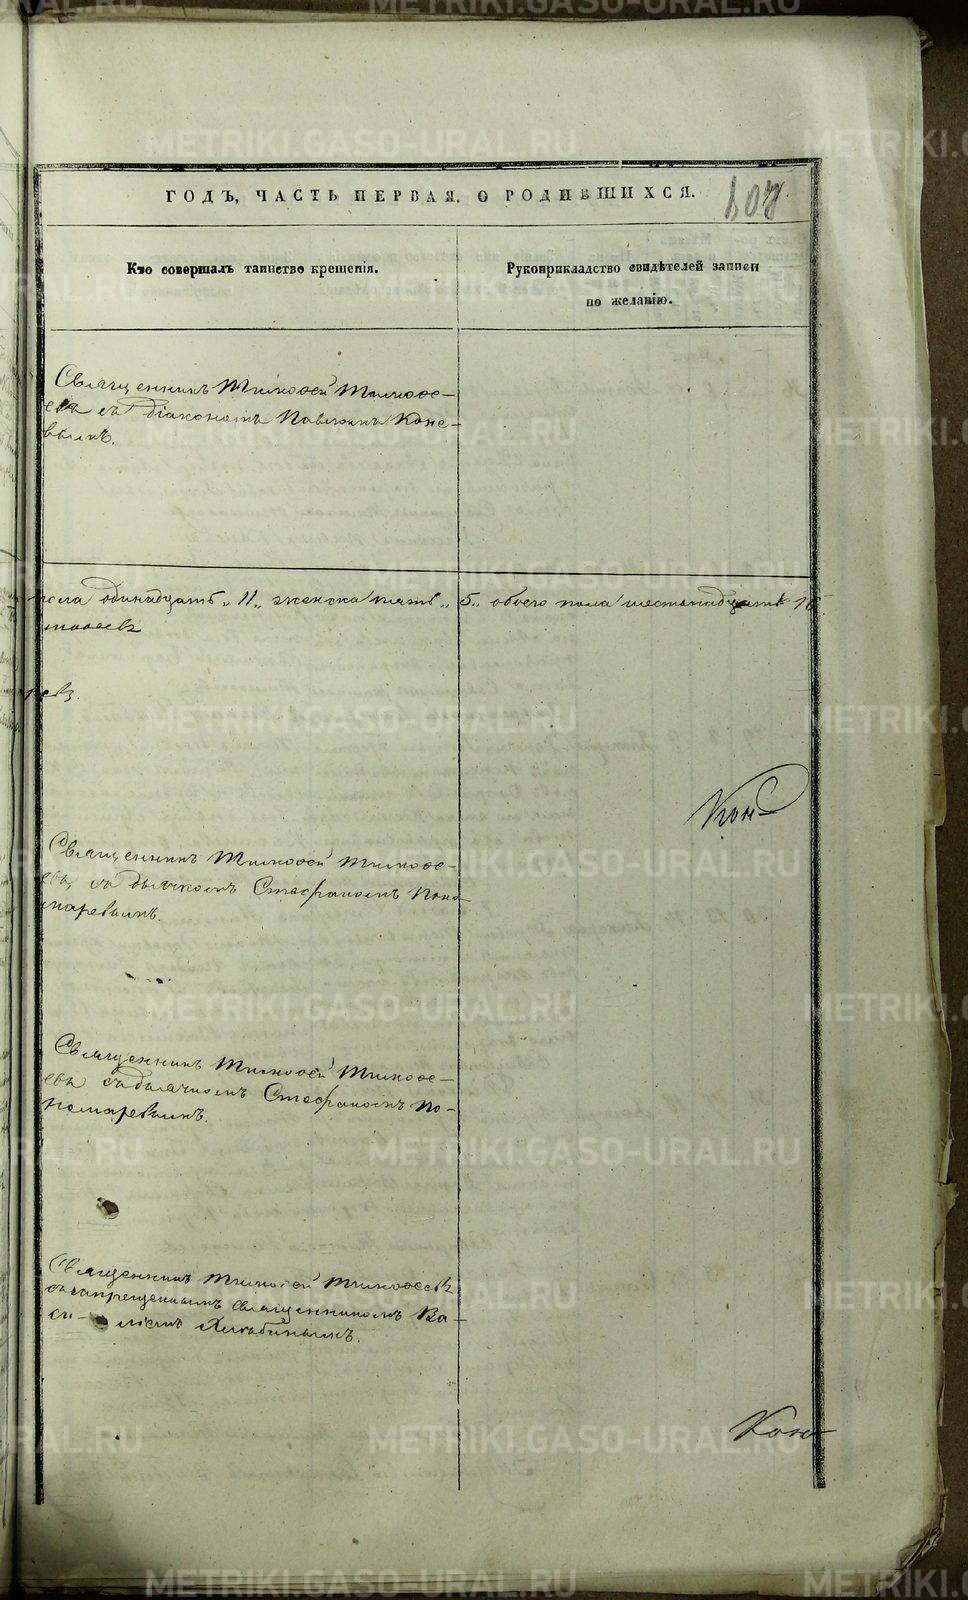 METRIKI.GASO-URAL.RU
ГОДЪ, ЧАСТЬ ПЕРВАЯ, О РОДИВШИХСЯ.
Кто совершалъ таинство крещенія.
Рукоприкладство свидѣтелей записи
по желанію.
Священникъ Тимоѳей Тимоѳе-
евъ съ діакономъ Павломъ Коне-
вымъ.
пола одинадцать „11„ женска пять „5„ обоего пола шестьнадцать 16
Священникъ Тимоѳей Тимоѳе-
евъ, съ дьячкомъ Стефаномъ Поно-
маревымъ.
Священникъ Тимоѳей Тимоѳе-
евъ съ дьячкомъ Стефаномъ По-
номаревымъ.
Священникъ Тимоѳей Тимоѳеевъ
съ запрещеннымъ священникомъ Ва-
си-ліемъ Хлѣбинымъ.
Кон